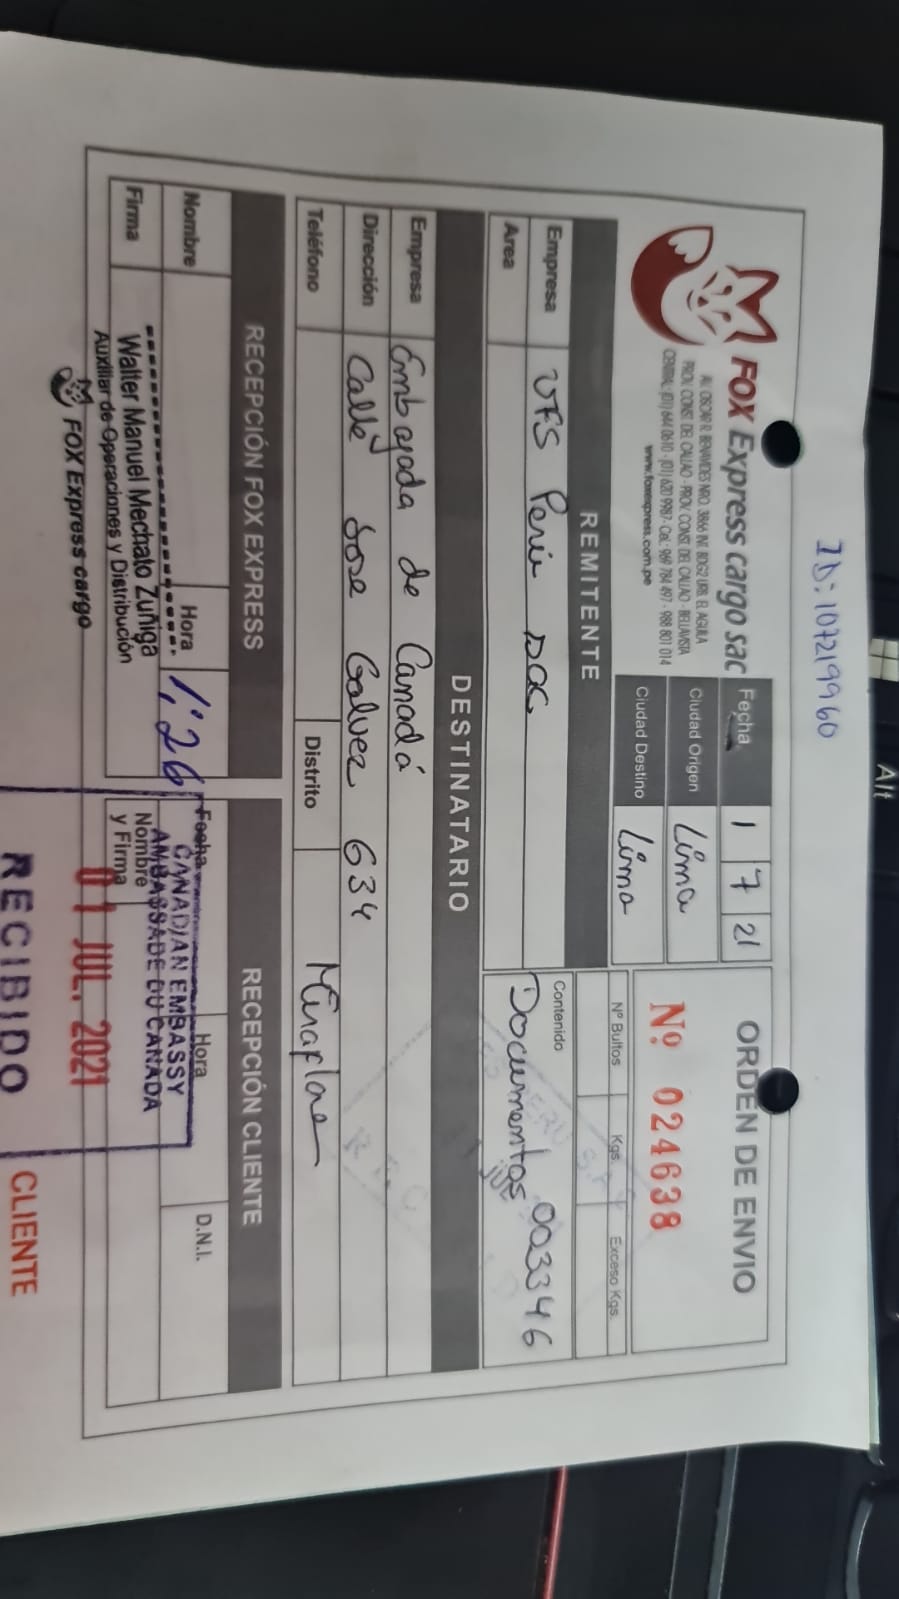 ID: 107219960
Alt
FOX Express cargo sac
AV. OSCAR R. BENAVIDES NRO. 3866 INT. BDG2 URB. EL AGUILA
PROV. CONST. DEL CALLAO - PROV. CONST. DEL CALLAO - BELLAVISTA
CENTRAL: (01) 644 0610 - (01) 620 9987 - Cel.: 969 784 497 - 988 801 014
www.foxexpress.com.pe
Fecha 1 7 21
Ciudad Origen Lima
Ciudad Destino Lima
ORDEN DE ENVIO
Nº 024638
Nº Bultos Kgs Exceso Kgs.
REMITENTE
Empresa VFS Perú SAC
Area
Contenido
Documentos 003346
DESTINATARIO
Empresa Embajada de Canadá
Dirección Calle Jose Galvez 634
Teléfono
Distrito Miraflore
RECEPCIÓN FOX EXPRESS
Nombre
Hora 1:26
Firma
Walter Manuel Mechato Zuñiga
Auxiliar de Operaciones y Distribución
FOX Express cargo
RECEPCIÓN CLIENTE
Fecha Hora D.N.I.
Nombre
y Firma
CANADIAN EMBASSY
AMBASSADE DU CANADA
01 JUL. 2021
RECIBIDO
CLIENTE